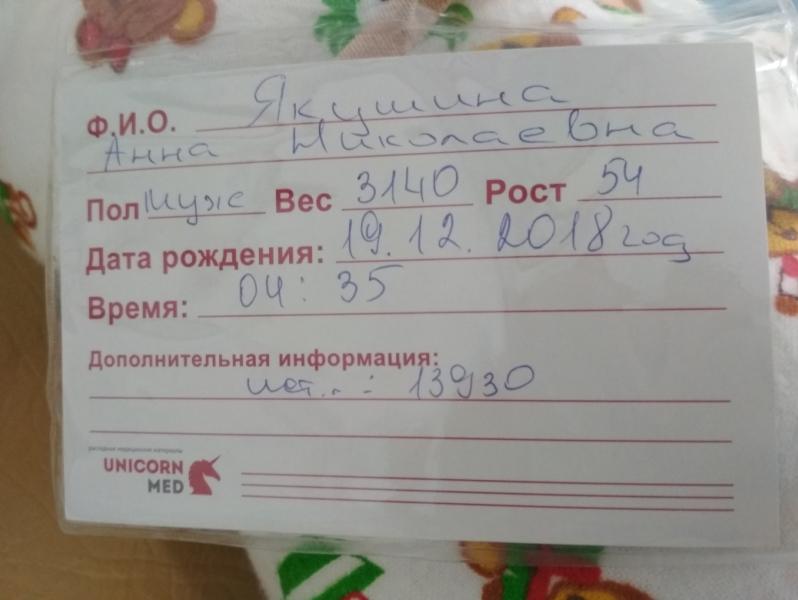 Ф.И.О. Якушина
Анна Николаевна
Пол муж Вес 3140 Рост 54
Дата рождения: 19.12.2018 год
Время: 04:35
Дополнительная информация:
ист..: 13930
расходные медицинские материалы
UNICORN
MED